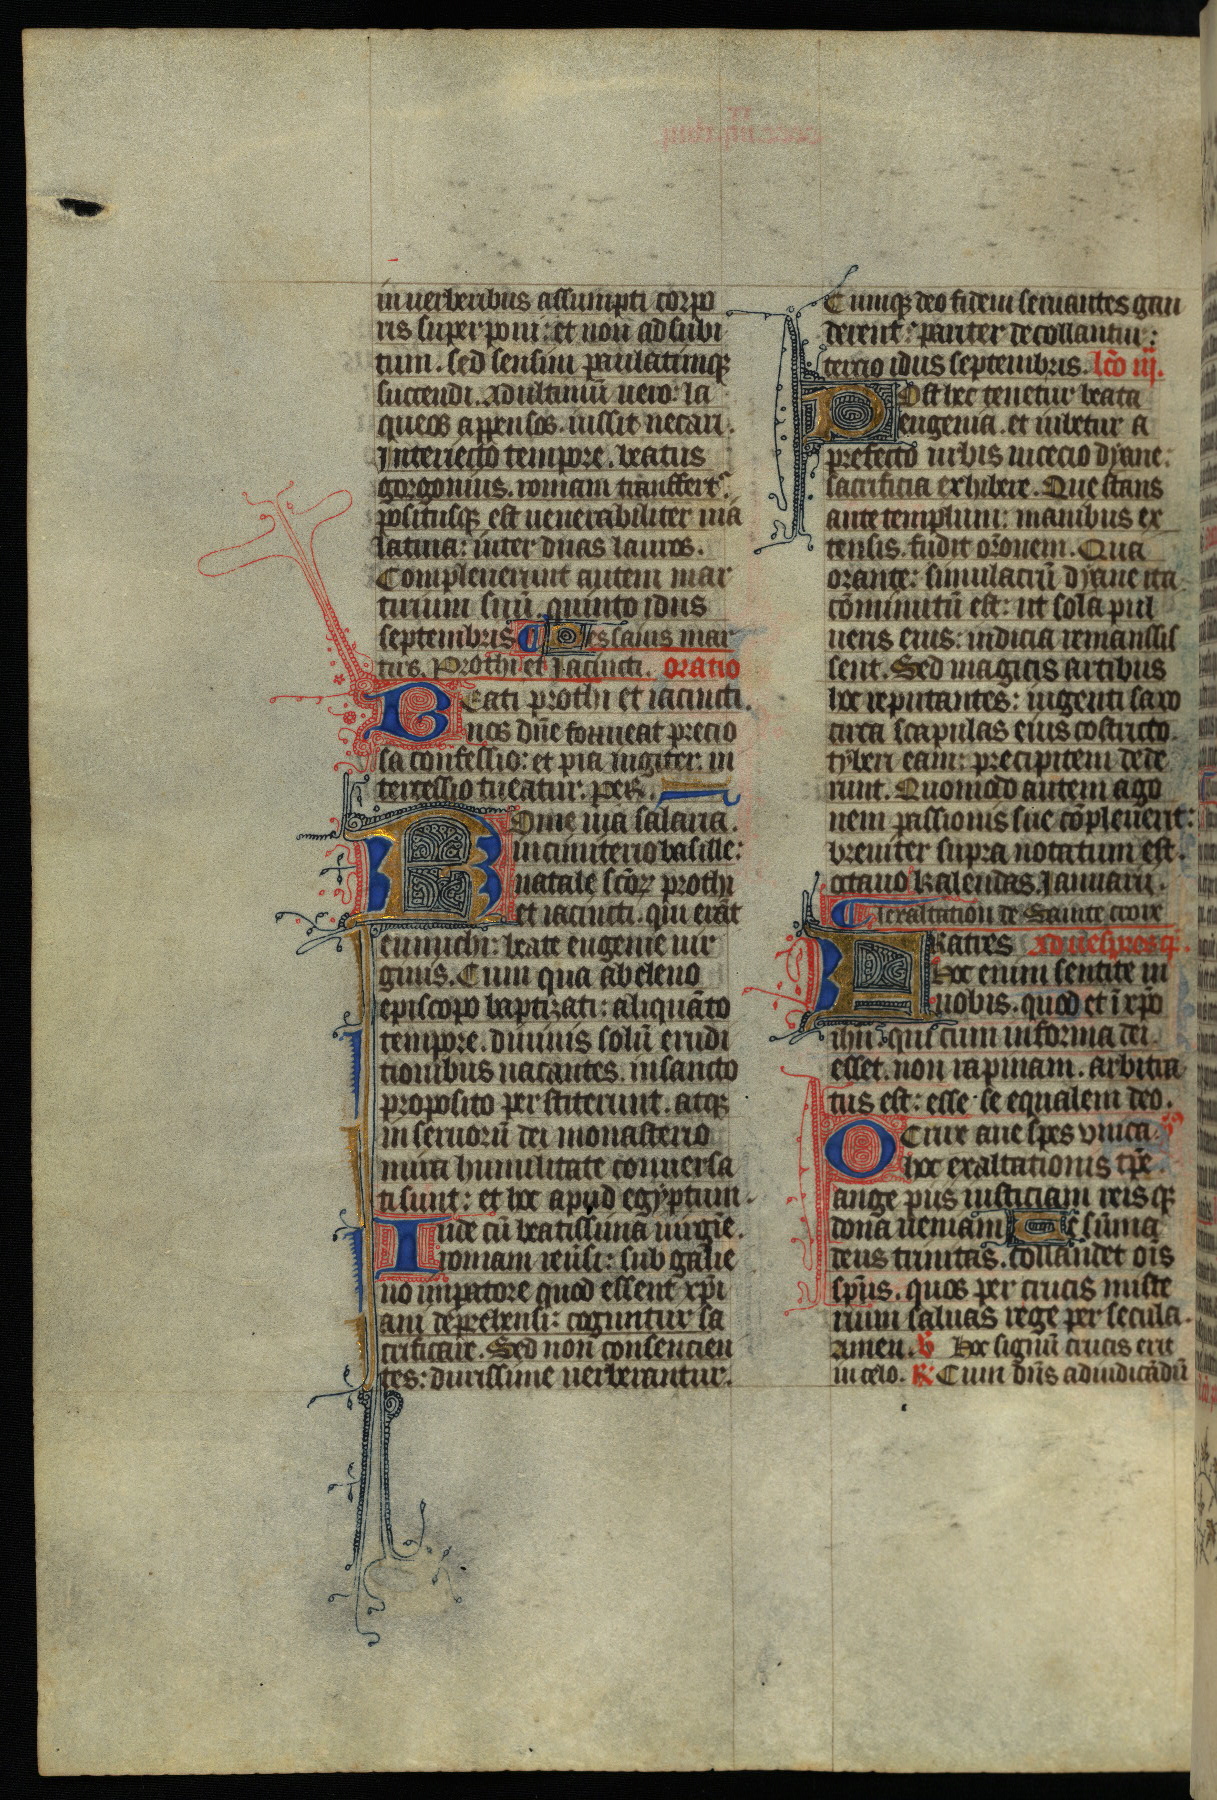 in uerberibus assumpti corpo
ris super poni: et non ad subi
tum. sed sensim paulatimq;
succendi. Ad ultimū uero: la
queos appensos. iussit necari.
Interiecto tempore. beatus
gorgonius. romam transfert᷒.
positusq; est uenerabiliter uia
latina: inter duas lauros.
Compleuerunt autem mar
tirium suū. quinto idus
septembris ¶ Des sains mar
tirs. Prothi et Jacincti. oratio
Beati prothi et iacincti.
nos dn̄e foueat precio
sa confessio: et pia iugiter in
tercessio tueatur. per.
Rome uia salaria.
in cimiterio basille:
natale sc̄oꝝ prothi
et iacincti. qui erāt
eunuchi: beate eugenie uir
ginis. Cum qua ab eleno
episcopo baptizati: aliquāto
tempore. diuinis solū erudi
tionibus uacantes. in sancto
proposito perstiterunt. atq;
in seruorū dei monasterio
mira humilitate conuersa
ti sunt: et hoc apud egyptum.
Inde cū beatissima uirgīe.
romam reuersi: sub galie
no imperatore quod essent xp̄i
ani deprehensi: coguntur sa
crificare. Sed non consencien
tes: durissime uerberantur.
Cumq; deo fidem seruantes gau
derent: pariter decollantur:
tercio idus septembris. lc̄o iij.
Post hec tenetur beata
eugenia. et iubetur a
prefecto urbis nicecio dyane:
sacrificia exhibere. Que stans
ante templum: manibus ex
tensis. fudit or̄onem. Qua
orante: simulacrū dyane ita
cōminutū est: ut sola pul
ueris eius: indicia remansis
sent. Sed magicis artibus
hoc reputantes: ingenti saxo
circa scapulas eius cōstricto.
tyberi eam: precipitem dede
runt. Quomodo autem ago
nem passionis sue cōpleuerit:
breuiter supra notatum est.
octauo kalendas Januarii.
¶ Lexaltation de Sainte croix
FRatres Ad uespres. cap̄.
Hoc enim sentite in
uobis. quod et ī xp̄o
ihū: qui cum in forma dei
esset. non rapinam. arbitra
tus est: esse se equalem deo.
O Crux aue spes unica. ỹ
hoc exaltationis tp̄e.
auge piis iusticiam reisq;
dona ueniam Te sūma
deus trinitas. collaudet oīs
sp̄us. quos per crucis miste
rium saluas rege per secula.
amen. v̄ Hoc signū crucis erit
in celo. R̸ Cum dn̄s ad iudicādū